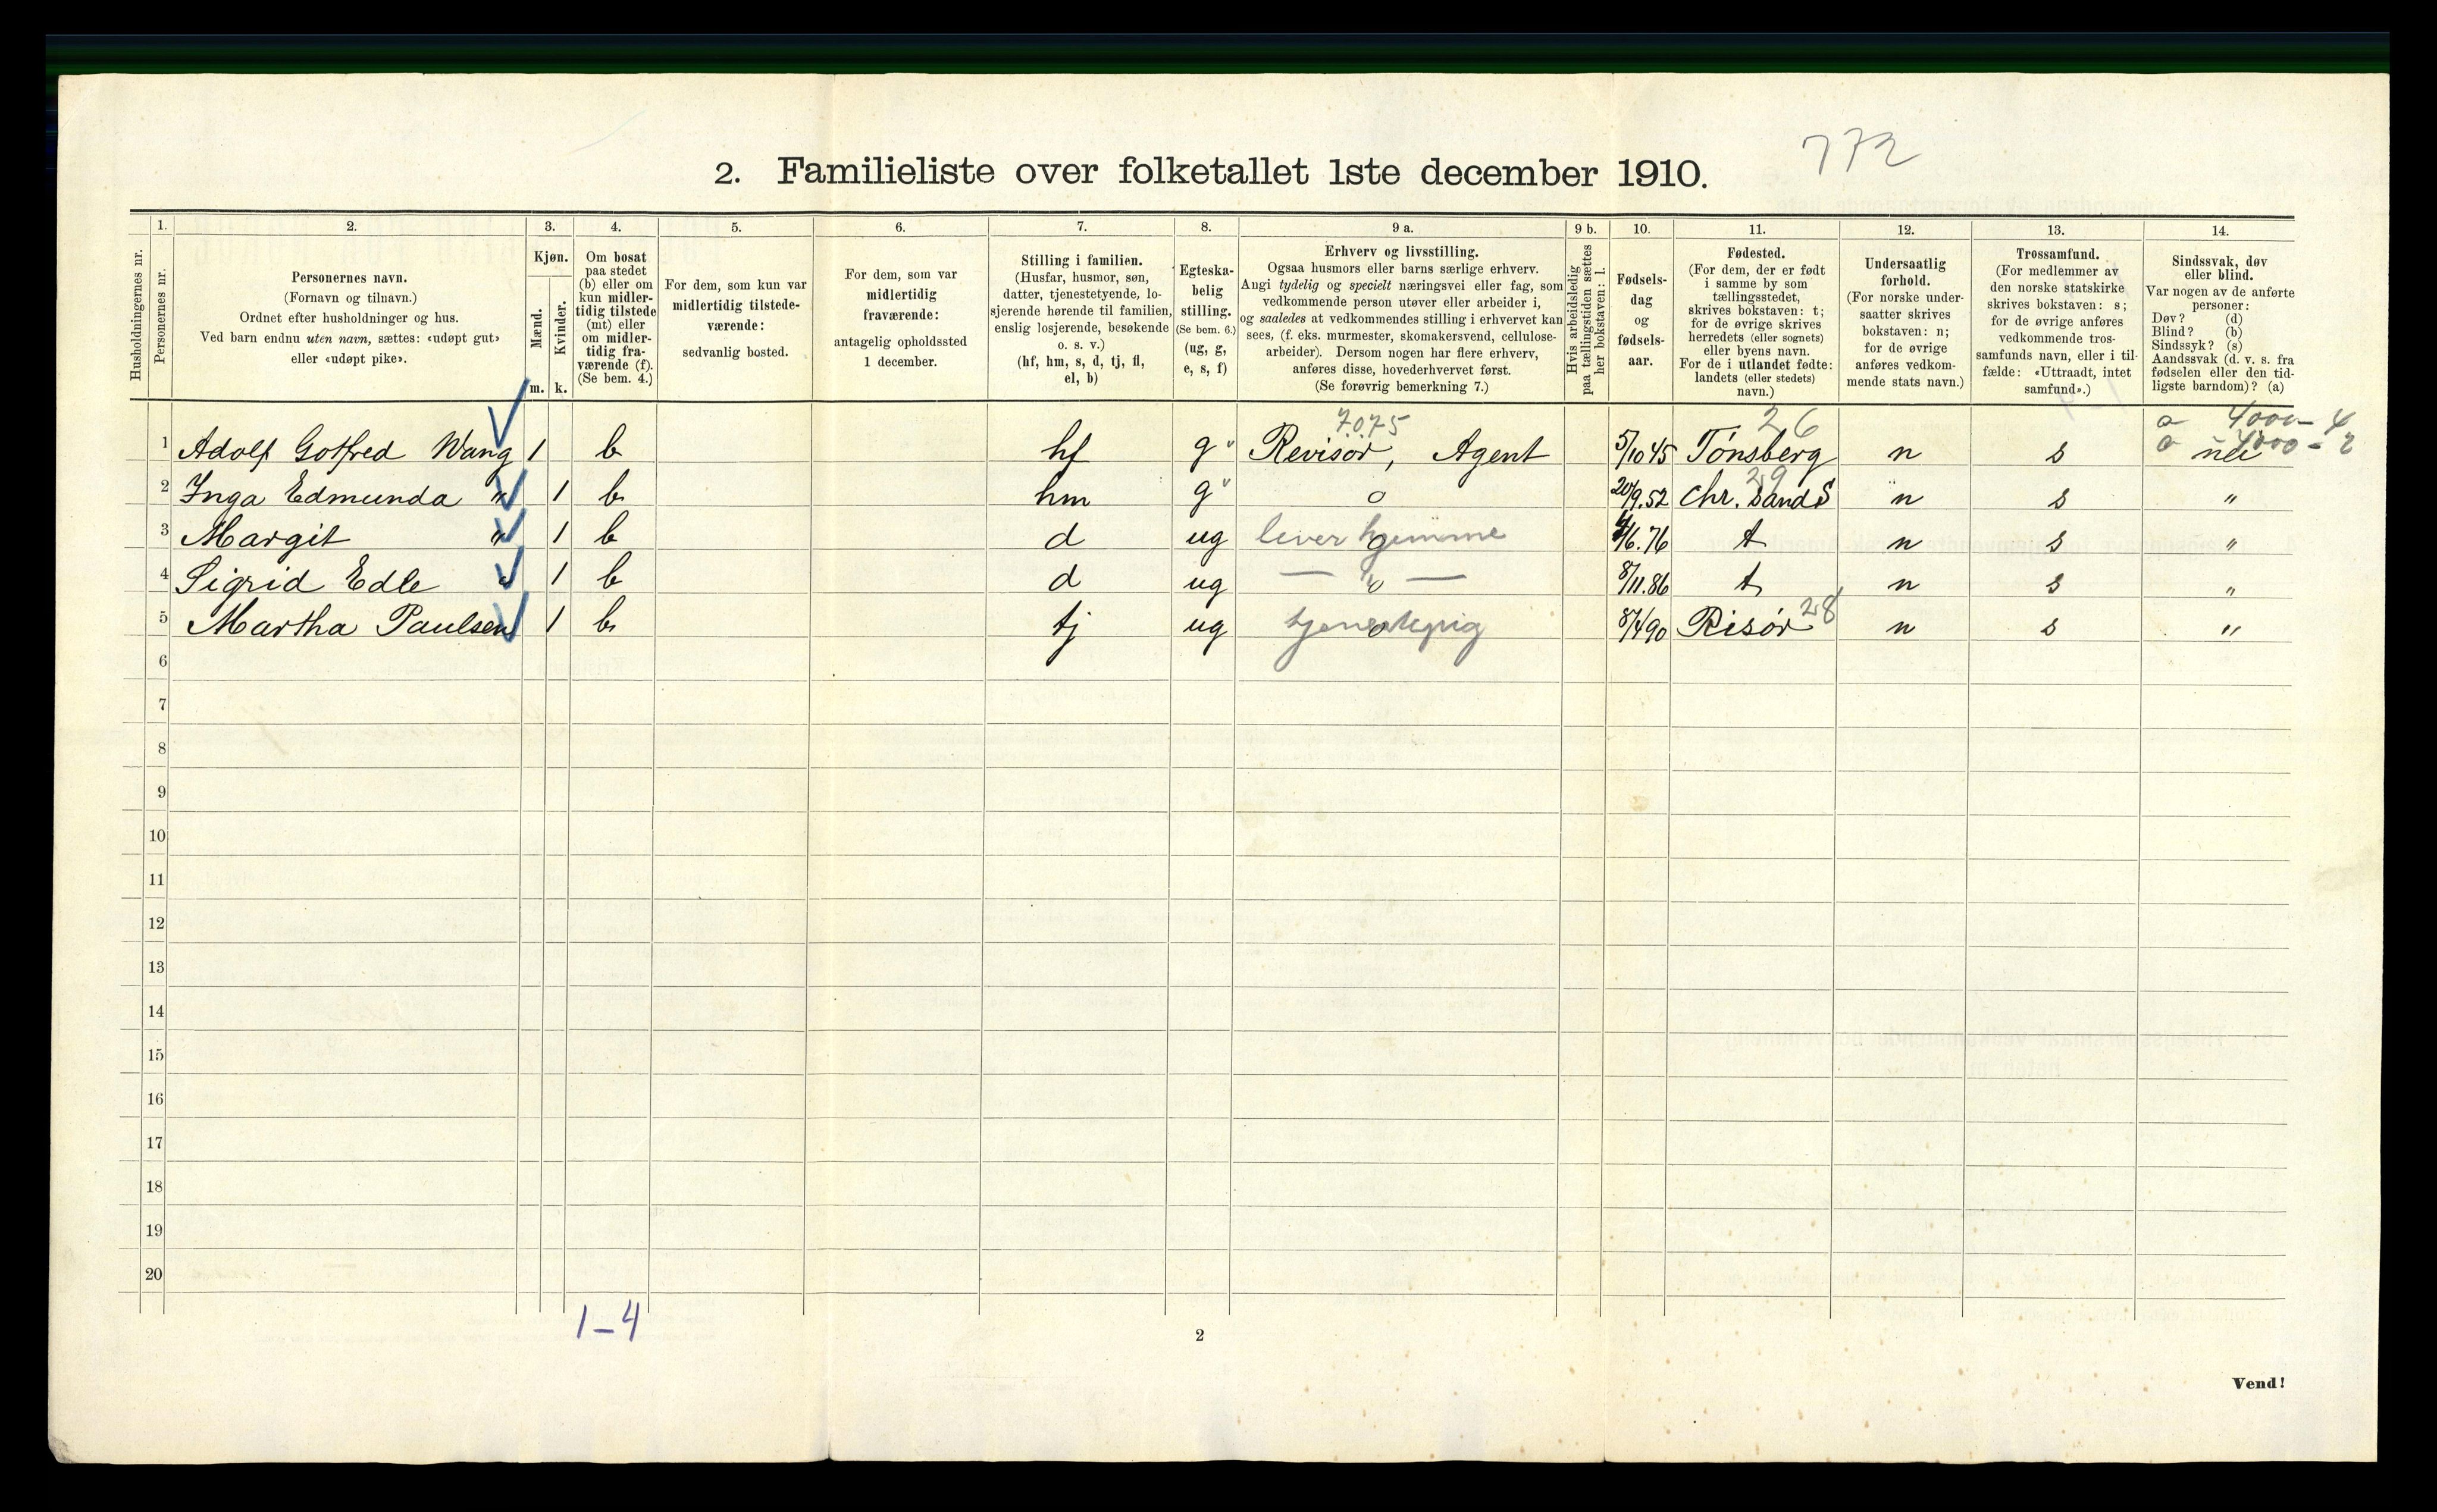 772
2. Familieliste over folketallet 1ste december 1910.
Husholdningernes nr.
1.
Personernes nr.
2.
Personernes navn.
(Fornavn og tilnavn.)
Ordnet efter husholdninger og hus.
Ved barn endnu uten navn, sættes: «udøpt gut»
eller «udøpt pike».
3.
Kjøn.
Mænd.
Kvinder.
m.
k.
4.
Om bosat
paa stedet
(b) eller om
kun midler-
tidig tilstede
(mt) eller
om midler-
tidig fra-
værende (f).
(Se bem. 4.)
5.
For dem, som kun var
midlertidig tilstede-
værende:
sedvanlig bosted.
6.
For dem, som var
midlertidig
fraværende:
antagelig opholdssted
1 december.
7.
Stilling i familien.
(Husfar, husmor, søn,
datter, tjenestetyende, lo-
sjerende hørende til familien,
enslig losjerende, besøkende
o. s. v.)
(hf, hm, s, d, tj, fl,
el, b)
8.
Egteska-
belig
stilling.
(Se bem. 6.)
(ug, g,
e, s, f)
9 a.
Erhverv og livsstilling.
Ogsaa husmors eller barns særlige erhverv.
Angi tydelig og specielt næringsvei eller fag, som
vedkommende person utøver eller arbeider i,
og saaledes at vedkommendes stilling i erhvervet kan
sees, (f. eks. murmester, skomakersvend, cellulose-
arbeider). Dersom nogen har flere erhverv,
anføres disse, hovederhvervet først.
(Se forøvrig bemerkning 7.)
9 b.
Hvis arbeidsledig
paa tællingstiden sættes
her bokstaven: l.
10.
Fødsels-
dag
og
fødsels-
aar.
11.
Fødested.
(For dem, der er født
i samme by som
tællingsstedet,
skrives bokstaven: t;
for de øvrige skrives
herredets (eller sognets)
eller byens navn.
For de i utlandet fødte:
landets (eller stedets)
navn.)
12.
Undersaatlig
forhold.
(For norske under-
saatter skrives
bokstaven: n;
for de øvrige
anføres vedkom-
mende stats navn.)
13.
Trossamfund.
(For medlemmer av
den norske statskirke
skrives bokstaven: s;
for de øvrige anføres
vedkommende tros-
samfunds navn, eller i til-
fælde: «Uttraadt, intet
samfund».)
14.
Sindssvak, døv
eller blind.
Var nogen av de anførte
personer:
Døv? (d)
Blind? (b)
Sindssyk? (s)
Aandssvak (d. v. s. fra
fødselen eller den tid-
ligste barndom)? (a)
7075 26 o 4000 - 4
1 Adolf Gotfred Wang 1 b hf g Revisor, Agent 5/10 45 Tønsberg n s nei o 4000 - 2
29
2 Inga Edmunda " 1 b hm g o 20/9.52 Chr.sand S n s "
3 Margit " 1 b d ug o lever hjemme 4/6.76 t n s "
4 Sigrid Edle " 1 b d ug o — " — 8/11.86 t n s "
5 Martha Paulsen 1 b tj ug o tjenestepig 8/4 90 Risør 28 n s "
6
7
8
9
10
11
12
13
14
15
16
17
18
19
20
1-4
2
Vend!